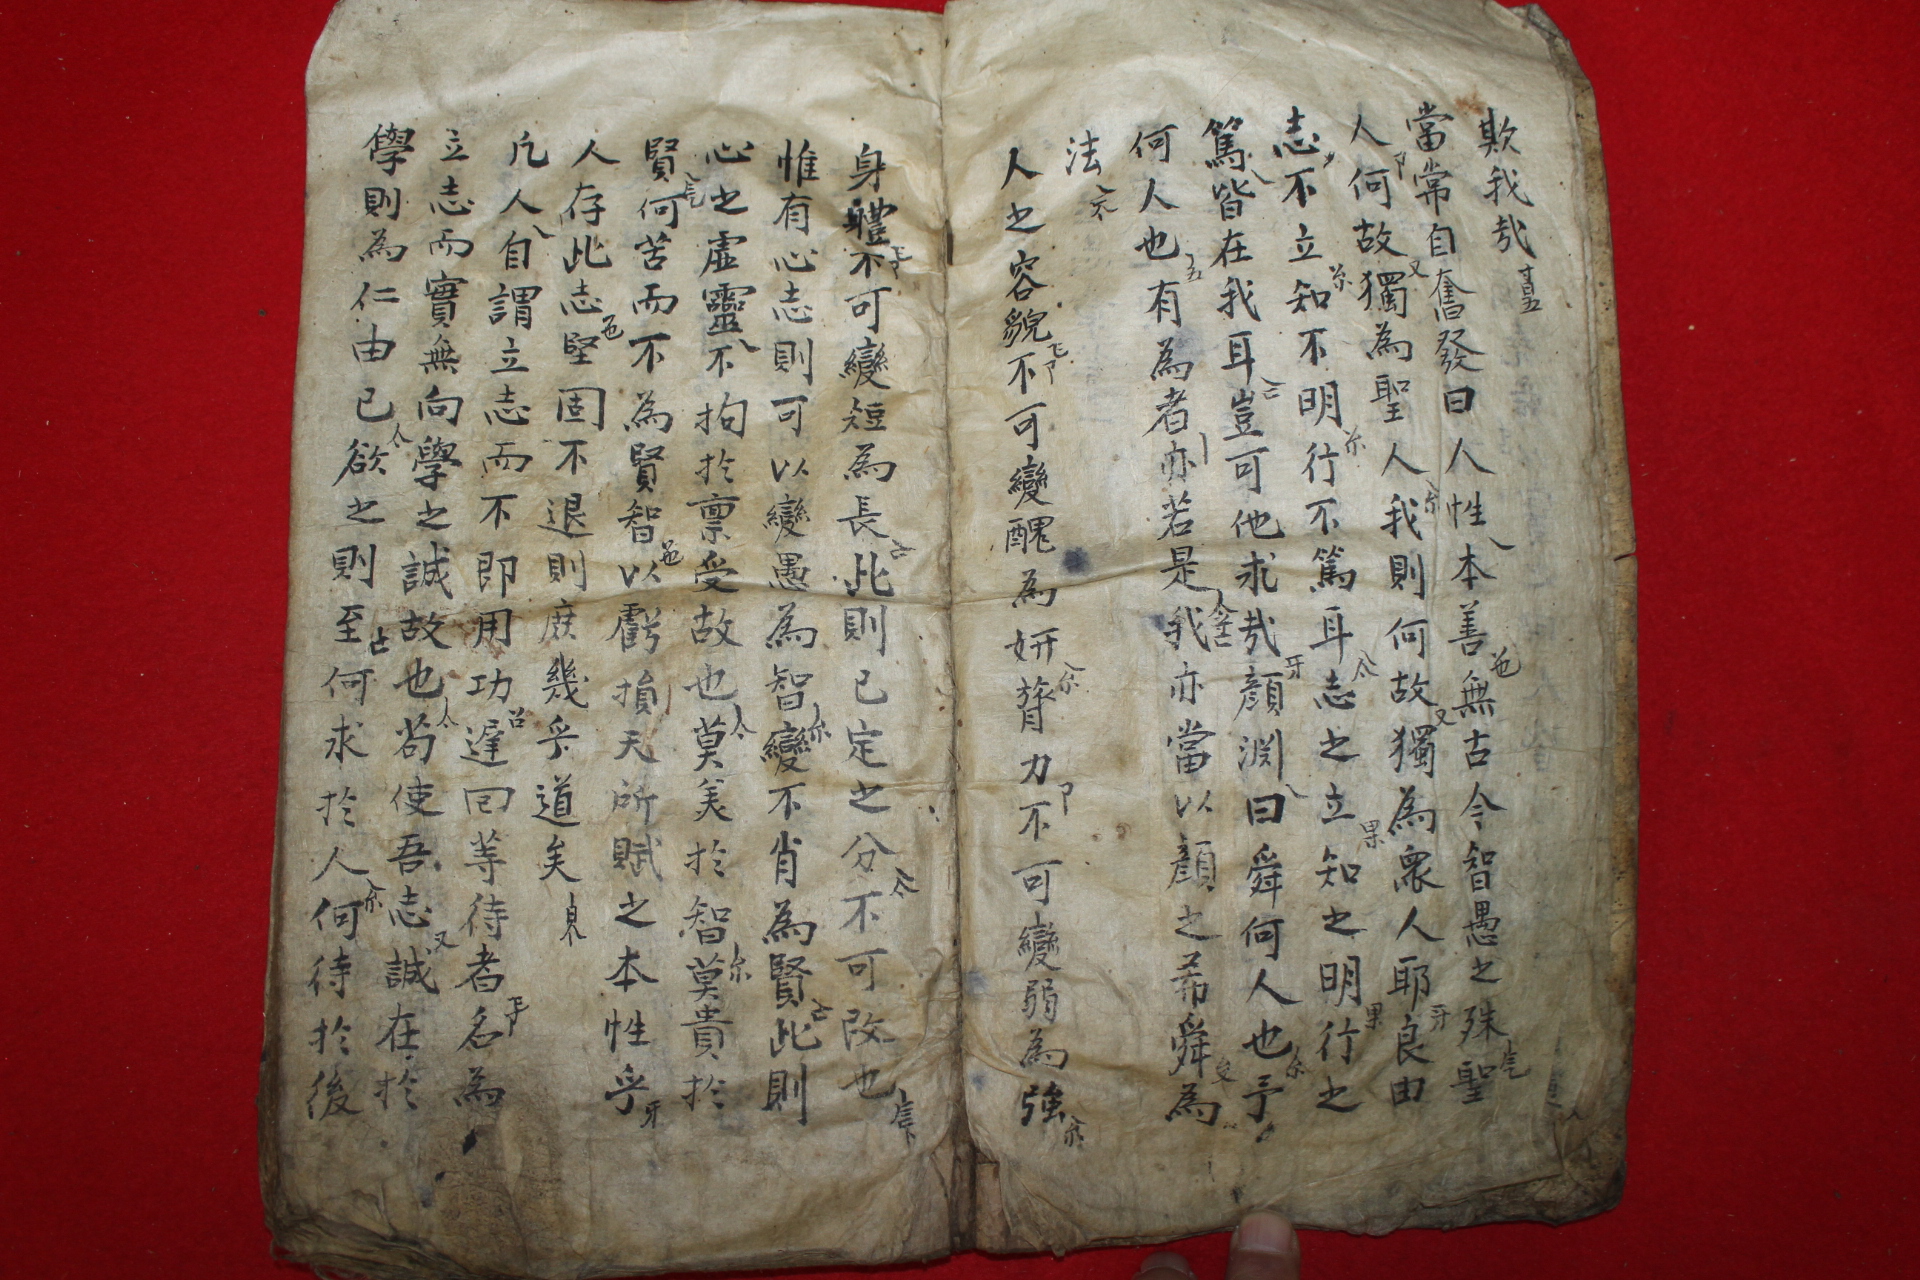 欺我哉
當常自奮發曰人性本善無古今智愚之殊聖
人何故獨為聖人我則何故獨為衆人耶良由
志不立知不明行不篤耳志之立知之明行之
篤皆在我耳豈可他求哉顏淵曰舜何人也予
何人也有為者亦若是我亦當以顏之希舜為
法
人之容貌不可變醜為姸膂力不可變弱為強
身軆不可變短為長此則已定之分不可改也
惟有心志則可以變愚為智變不肖為賢此則
心之虛靈不拘於禀受故也莫美於智莫貴於
賢何苦而不為賢智以虧損天所賦之本性乎
人存此志堅固不退則庶幾乎道矣
凡人自謂立志而不即用功遲回等待者名為
立志而實無向學之誠故也苟使吾志誠在於
學則為仁由已欲之則至何求於人何待於後